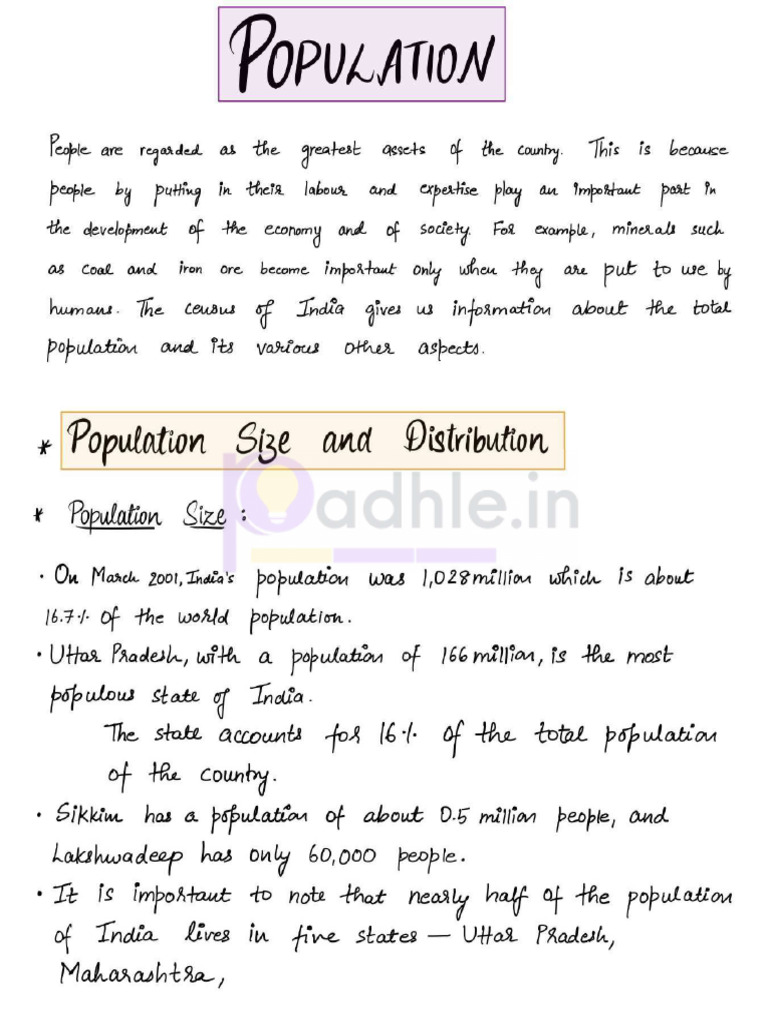 POPULATION
People are regarded as the greatest assets of the country. This is because
people by putting in their labour and expertise play an important part in
the development of the economy and of society. For example, minerals such
as coal and iron ore become important only when they are put to use by
humans. The census of India gives us information about the total
population and its various other aspects.
* Population Size and Distribution
padhle.in
* Population Size :
· On March 2001, India's population was 1,028 million which is about
16.7% of the world population.
· Uttar Pradesh, with a population of 166 million, is the most
populous state of India.
The state accounts for 16% of the total population
of the country.
· Sikkim has a population of about 0.5 million people, and
Lakshwadeep has only 60,000 people.
· It is important to note that nearly half of the population
of India lives in five states — Uttar Pradesh,
Maharashtra,